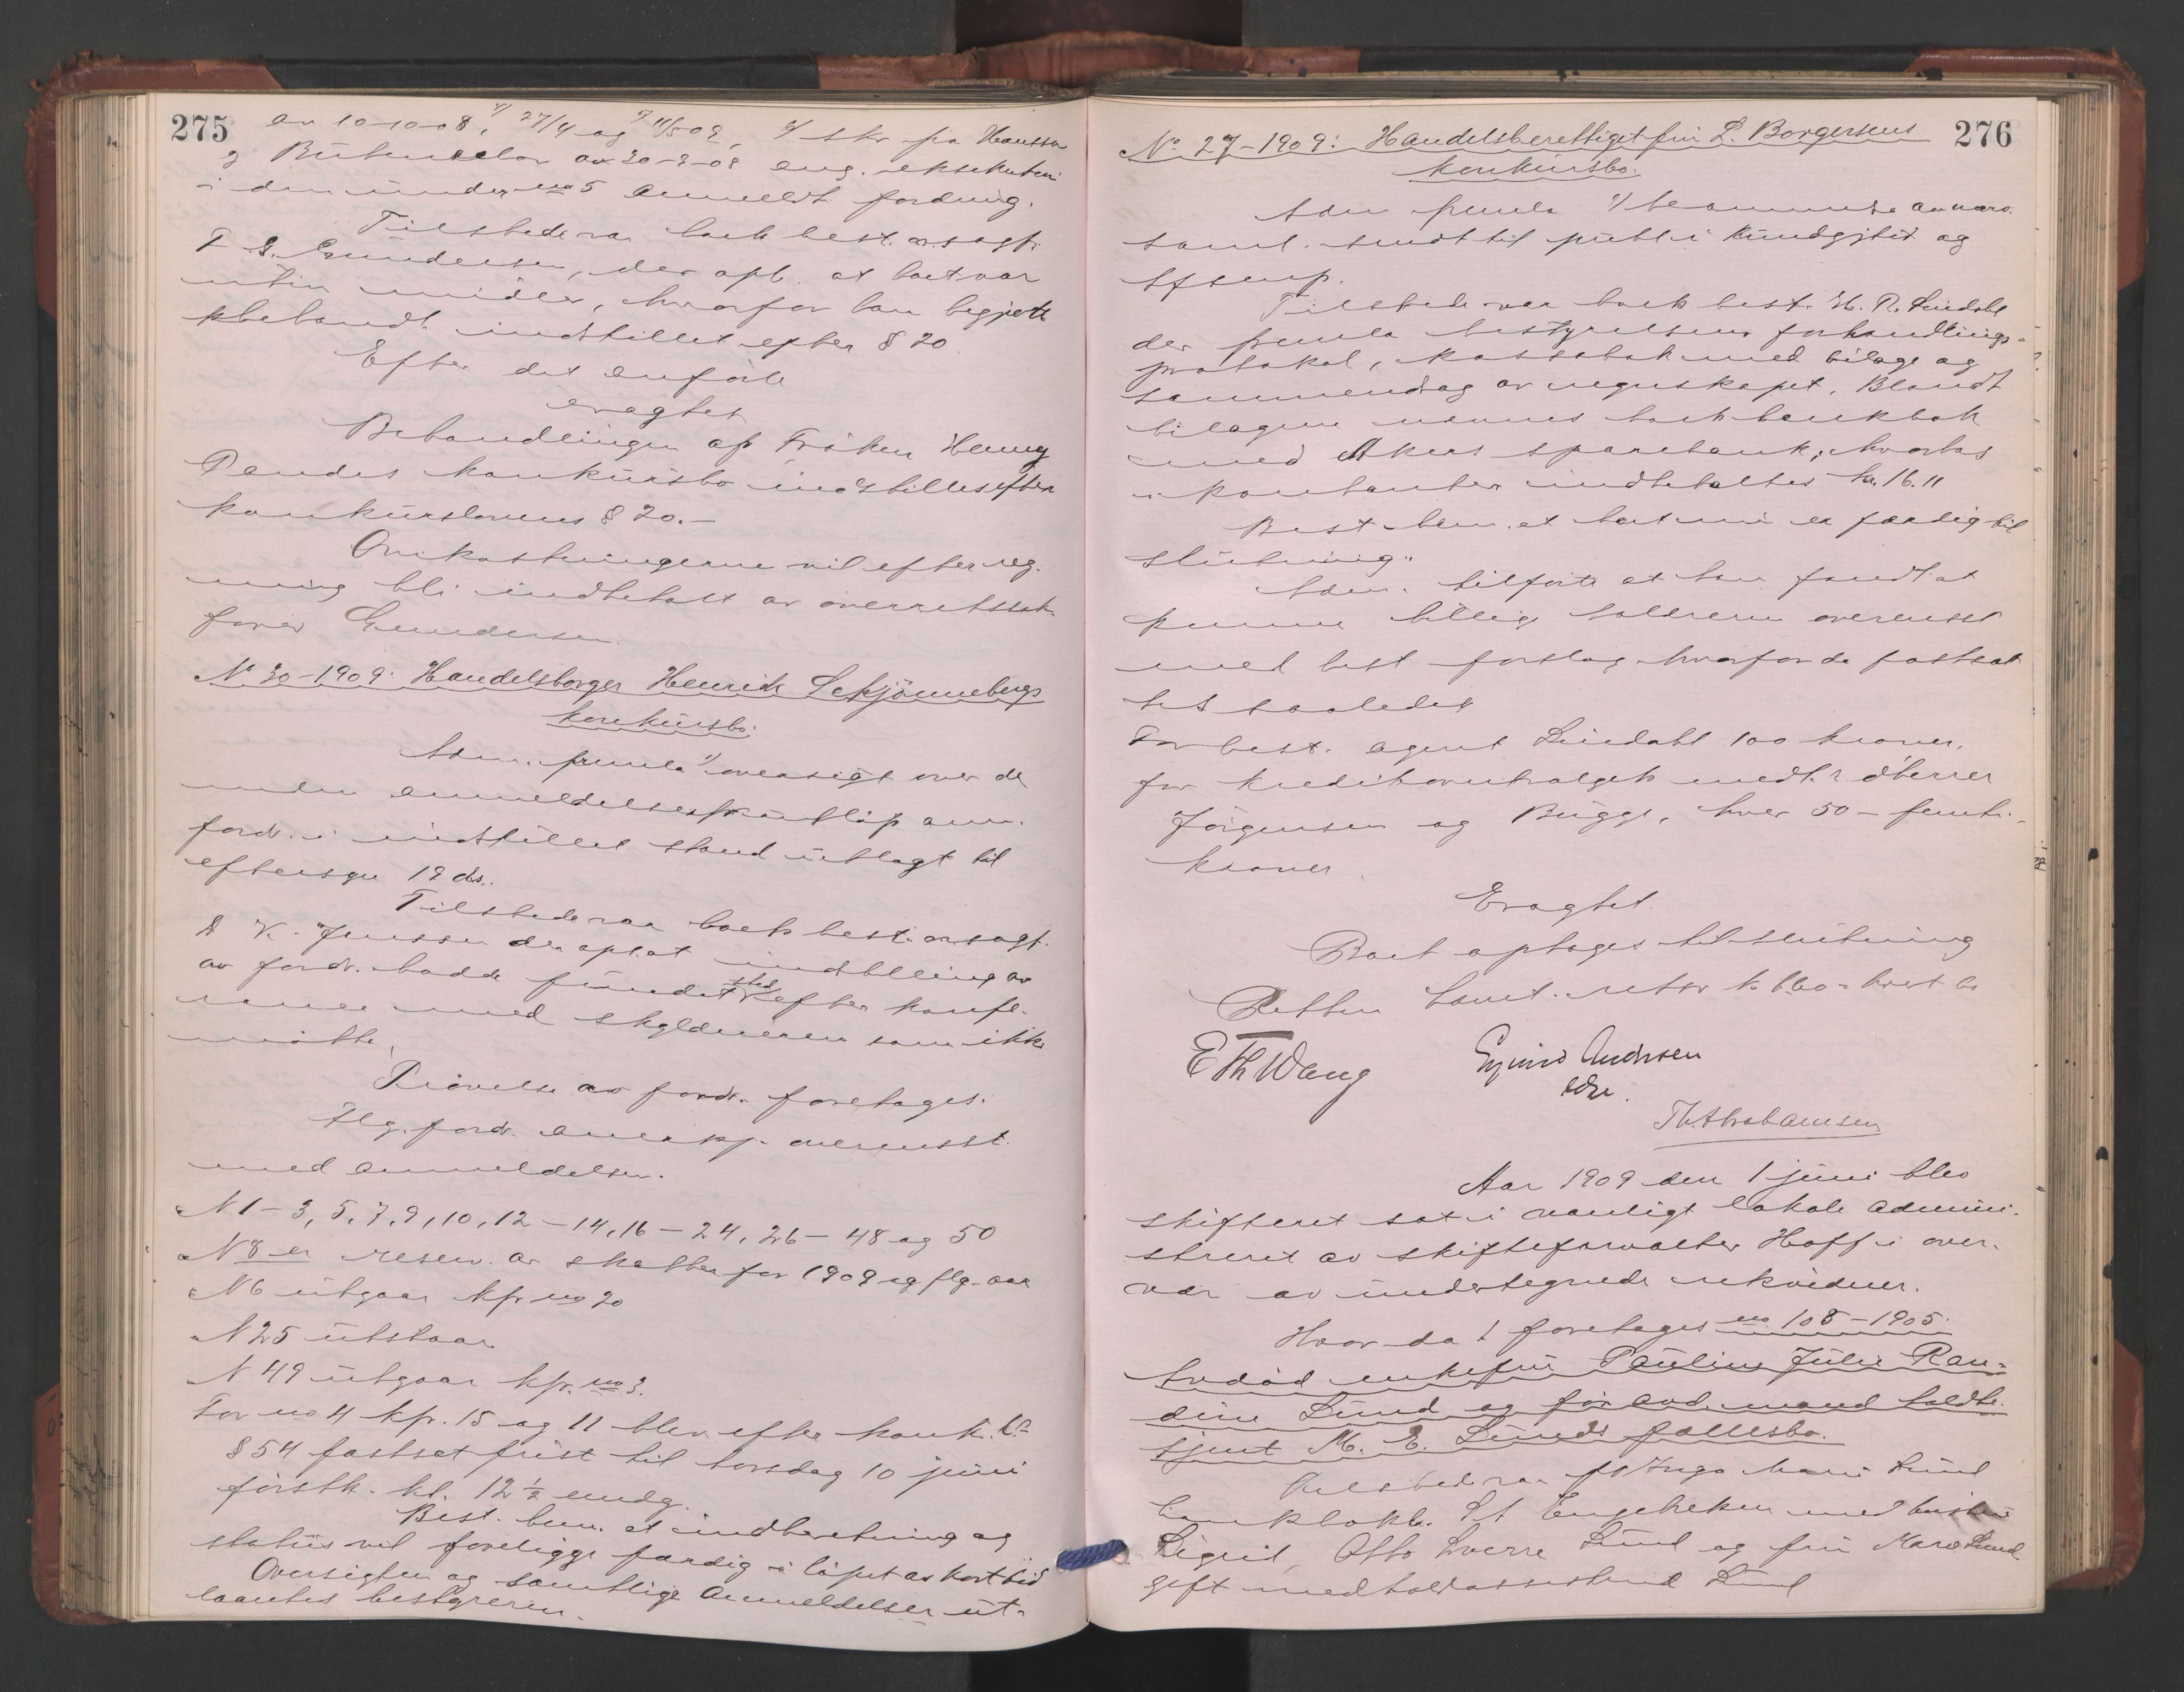 275
av 10-10-08, 27/4 og 11/5 09, skr fra Hansson
i den under no 5 anmeldt fordring.
Tilstede var boets best. o.r.sagf.
T. S. Gundersen, der opl. at boet var
uten midler, hvorfor han begjærte
behandl. indstillet efter § 20
Efter det anförte
eragtes
Behandlingen af Fröken Henny
konkursbo indstilles efter
konkurslovens § 20.-
Omkostningerne vil efter reg-
ning bli indbetalt av overretssak-
förer Gundersen
No 30-1909: Handelsborger Henrich Schjönnebergs
konkursbo.
Adm. freml. 1) oversigt over de
inden anmeldelsesfr. utlöp anm.
fordr. i indstillet stand utlagt til
eftersyn 19 ds.
Tilstede var boets best. o.r.sagf.
K. Jenssen der opl. at
av fordr. hadde fundet sted efter konfe-
rance med skyldneren som ikke
mötte.
Prövelse av fordr. foretages.
Flg. ford. anerkj. overensst.
med anmeldelsen.
N 1-3, 5, 7, 9, 10, 12-14, 16-24, 26-48 og 50
N 8 er reserv. av skatten for 1909 og flg. aar
N 6 utgaar kfr no 20
N 25 utstaar
N 49 utgaar kfr. no 3.
For no 4 kfr. 15 og 11 blev efter konk. l.
§ 54 fastsat frist til torsdag 10 juni
förstk. kl. 12 ½ emdg.
Best. bem. at indberetning og
status vil foreligge færdig i löpet av kort tid
Oversigten og samtlige anmeldelser ut-
laantes bestyreren.
276
No 27-1909: Handelsberettiget fru L. Borgersens
konkursbo.
Adm. freml. 1)
saml. sendt til publ. i kundgj.tid og
Tilstede var boets best. H. R. Lindahl
der freml. bestyrelsens forhandlings-
protokol, kassabok med bilage og
sammendrag av regnskapet. Blandt
bilagene nævnes boets bankbok
med Akers sparebank, hvorhos
i kontanter indbetaltes kr. 16.11
Best. bem. at boet nu er færdig til
slutning.
Adm. tilförte at han fandt at
kunne billige salærerne overensst
med best. forslag hvorfor de fastsat-
tes saaledes
For best. agent Lindahl 100 kroner,
for kreditorutvalgets medl. d'herrer
Jörgensen og Bugge, hver 50 - femti -
kroner.
Eragtet.
Boet optages til slutning
Retten hævet.
E Th Wang
Eyvind Andresen
Th. Abrahamsen
Aar 1909 den 1 juni blev
skifteret sat i vanligt lokale admini-
streret av skifteforvalter Hoff i over-
vær av undertegnede rettsvidner.
Hvor da 1 foretages no 108-1905:
avdöd enkefru Pauline Julie Ran-
dine Lund og för avd. mand toldbe-
tjent M. E. Lunds fællesbo.
Tilstede var frk Inga Marie Lund
med hustru
Sigrid, Otto Sverre Lund og fru Marie Lund
gift med toldassistent Lund